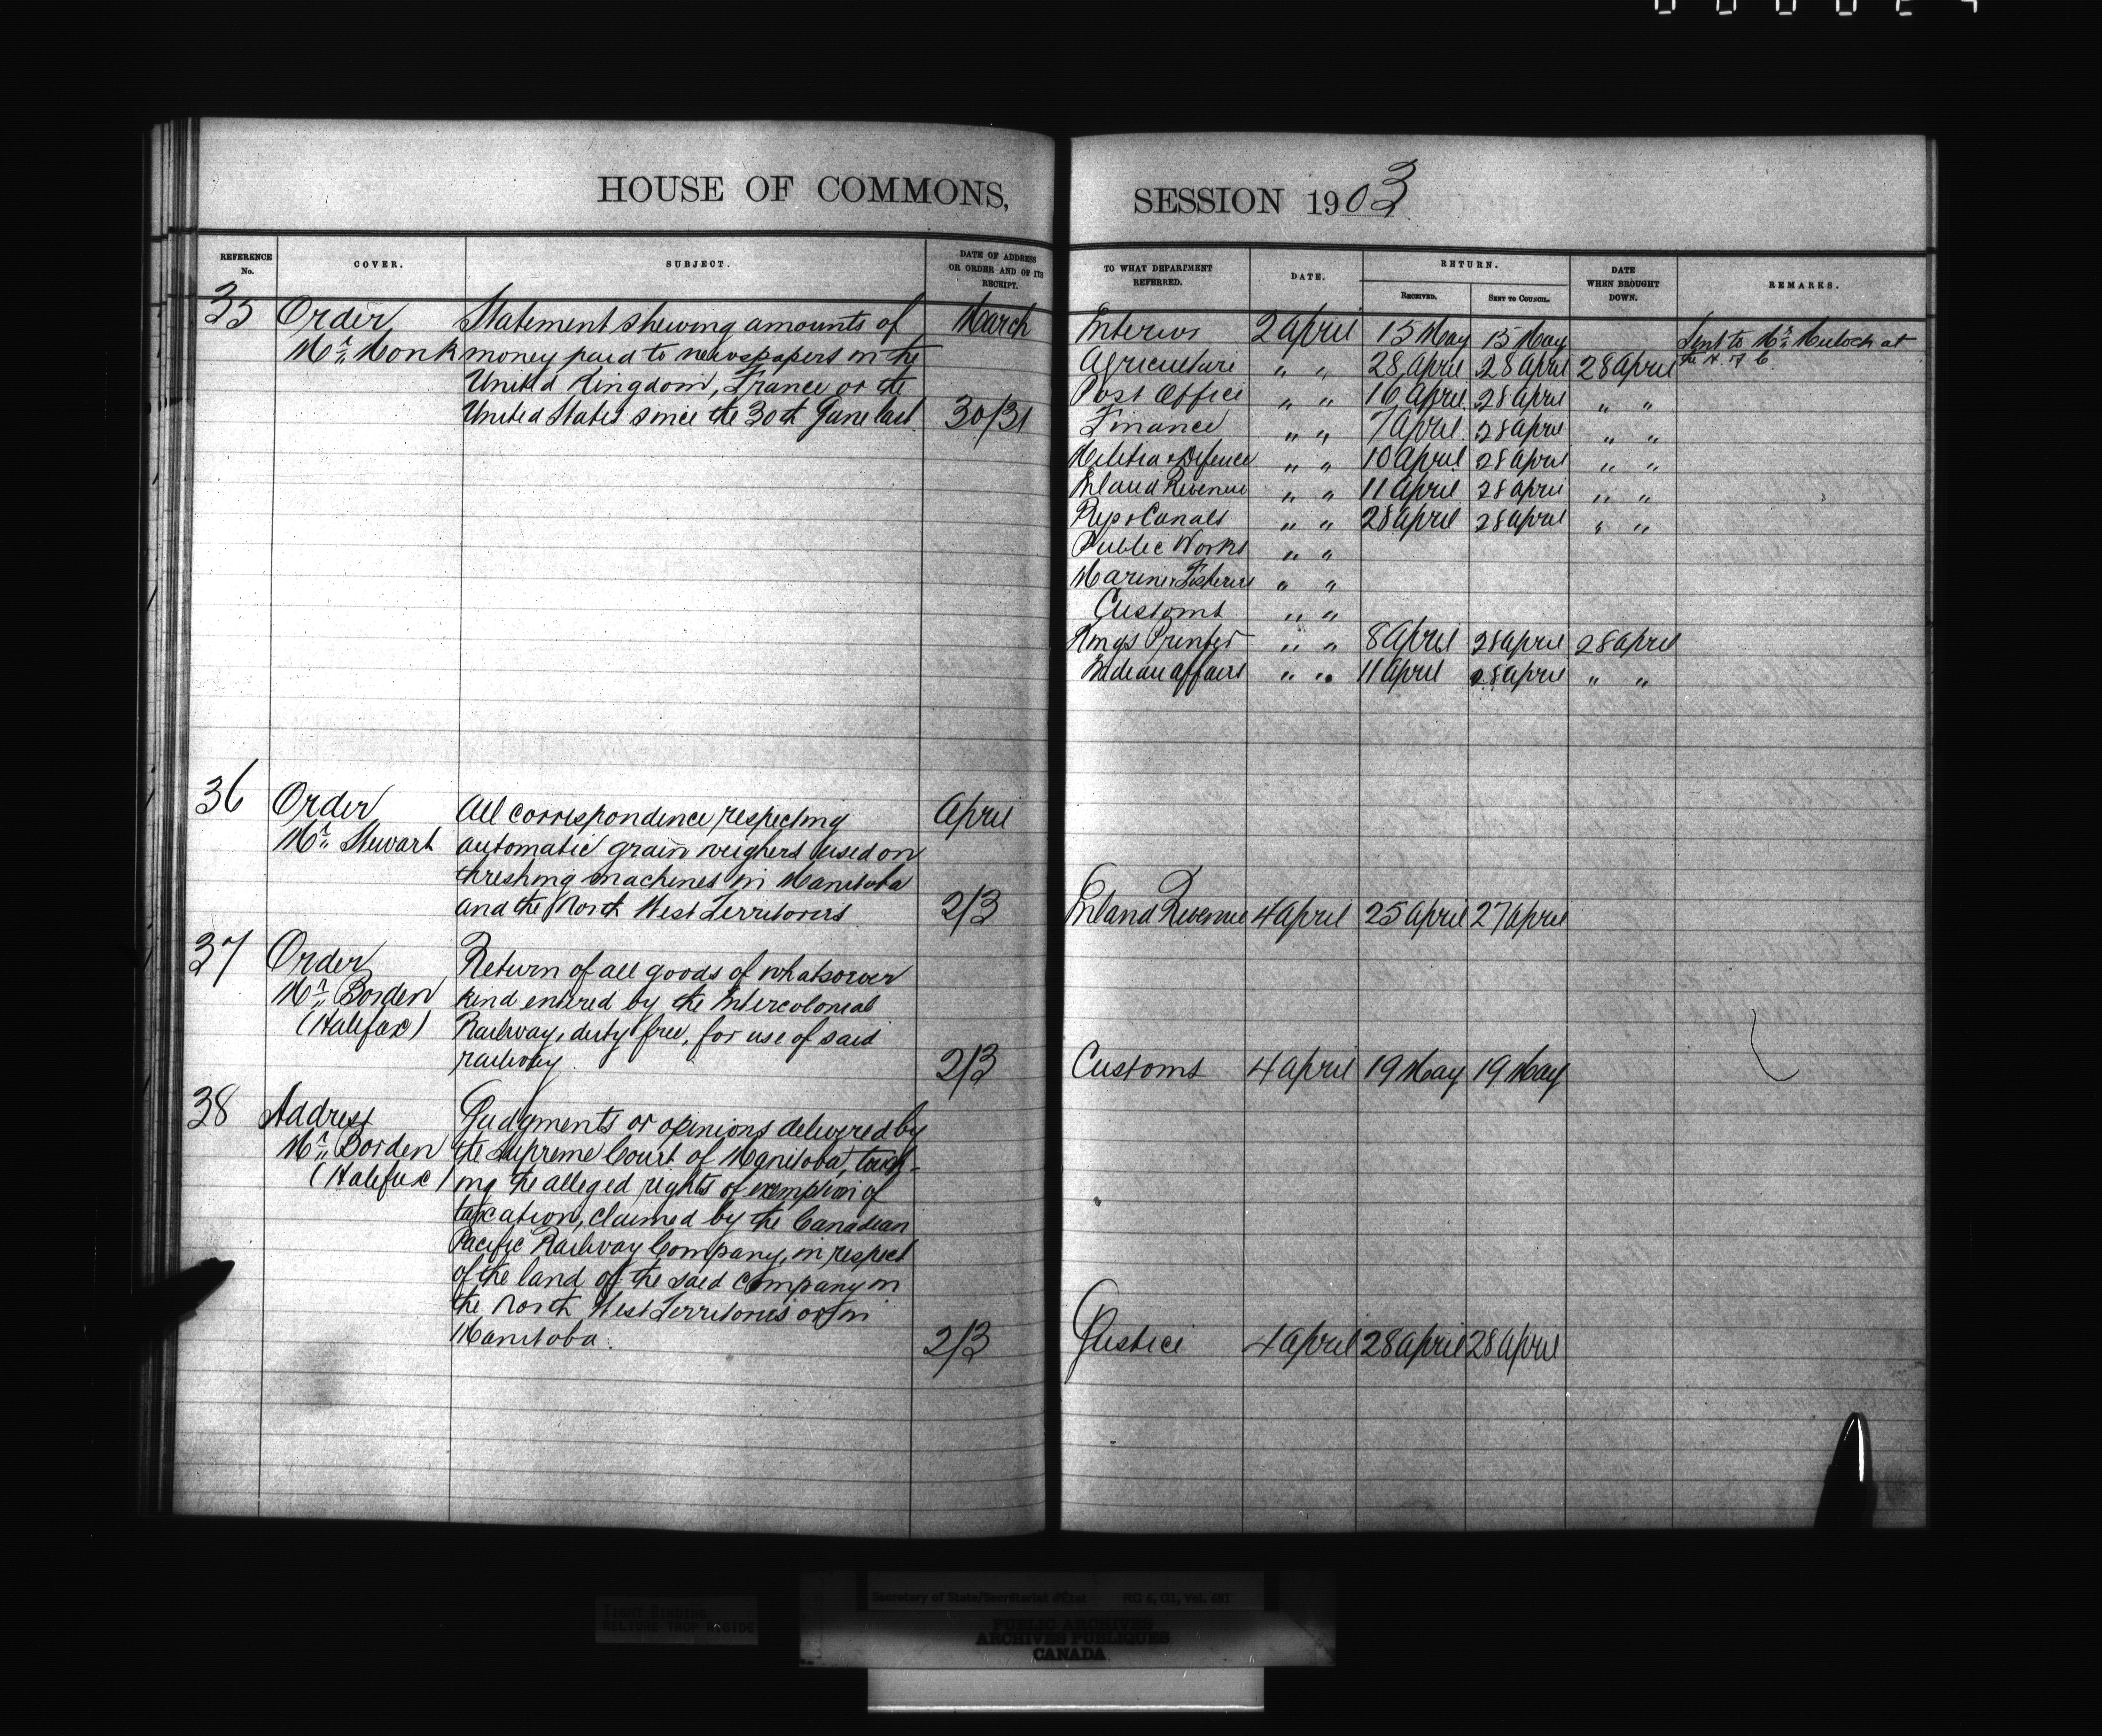 HOUSE OF COMMONS,
SESSION 1903
REFERENCE No.
COVER.
SUBJECT.
DATE OF ADDRESS OR ORDER AND OF ITS RECEIPT.
TO WHAT DEPARTMENT REFERRED.
DATE.
RETURN.
RECEIVED.
SENT TO COUNCIL.
DATE WHEN BROUGHT DOWN.
REMARKS.
35 Order Statement shewing amounts of March
Mr. Monk money paid to newspapers in the
United Kingdom, France or the
United States since the 30th June last 30/31
Interior 2 April 15 May 15 May Sent to Mr. Mulock at
Agriculture " " 28 April 28 April 28 April the H. of C.
Post Office " " 16 April 28 April " "
Finance " " 7 April 28 April " "
Militia & Defence " " 10 April 28 April " "
Inland Revenue " " 11 April 28 April " "
Rys & Canals " " 28 April 28 April " "
Public Works " "
Marine & Fisheries " "
Customs " "
Kings Printer " " 8 April 28 April 28 April
Indian Affairs " " 11 April 28 April " "
36 Order All correspondence respecting April
Mr. Stewart automatic grain weighers used on
threshing machines in Manitoba
and the North West Territories 2/3 Inland Revenue 4 April 25 April 27 April
37 Order Return of all goods of whatsoever
Mr. Borden kind entered by the Intercolonial
(Halifax) Railway, duty free, for use of said
railway. 2/3 Customs 4 April 19 May 19 May
38 Address Judgments or opinions delivered by
Mr. Borden the Supreme Court of Manitoba, touch-
(Halifax) ing the alleged rights of exemption of
taxation, claimed by the Canadian
Pacific Railway Company, in respect
of the land of the said Company in
the North West Territories or in
Manitoba. 2/3 Justice 4 April 28 April 28 April
TIGHT BINDING
RELIURE TROP RIGIDE
Secretary of State/Secrétariat d'État RG 6, G1, Vol. 681
PUBLIC ARCHIVES
ARCHIVES PUBLIQUES
CANADA